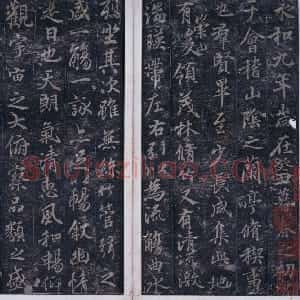 永和九年歲在癸丑暮春之初
于會稽山陰之蘭亭脩稧事
也羣賢畢至少長咸集此地
有崇山峻領茂林脩竹又有清流激
湍暎帶左右引以為流觴曲水
列坐其次雖無絲竹管弦之
盛一觴一詠亦足以暢敘幽情
是日也天朗氣清惠風和暢仰
觀宇宙之大俯察品類之盛